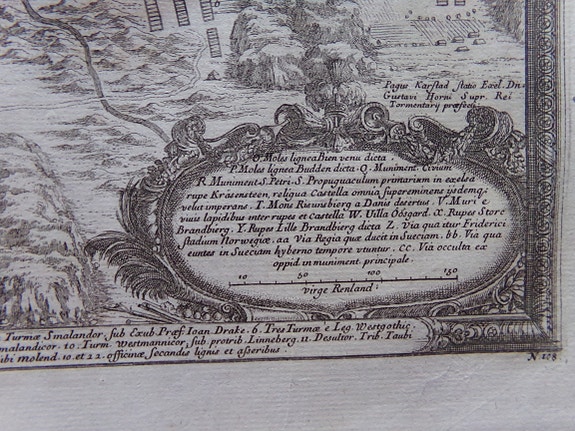 Pagus Karstad statio Excl. Dn.
Gustavi Horni Supr. Rei
Tormentarij præfecti
O. Moles lignea Bien venu dicta
P. Moles lignea Budden dicta. Q. Muniment. Civium
R. Muniment. S. Petri. S. Propugnaculum primarium in excelsa
rupe Kråsensteen, reliqua Castella omnia supereminens ijsdemq;
velut imperans. T. Mons Risunsbierg a Danis desertus. V. Muri e
viuis lapidibus inter rupes et Castella W. Villa Odsgard. X. Rupes Store
Brandbierg. Y. Rupes Lille Brandbierg dicta Z. Via qua itur Friderici
stadium Norwegiæ. aa Via Regia quæ ducit in Sueciam. bb. Via qua
euntes in Sueciam hyberno tempore vtuntur. CC. Via occulta ex
oppid. in muniment. principale.
10 50 100 150
virgæ Renland:
Turmæ Smalandor. sub Exub. Præf. Ioan Drake. 6. Tres Turmæ e Leg. Westgothic.
malandicor. 10. Turm. Westmannicor. sub protrib. Linneberg. 11. Desultor. Trib. Taubi
ibi molend. 10. et 22. officinæ secandis lignis et asseribus.
N 108